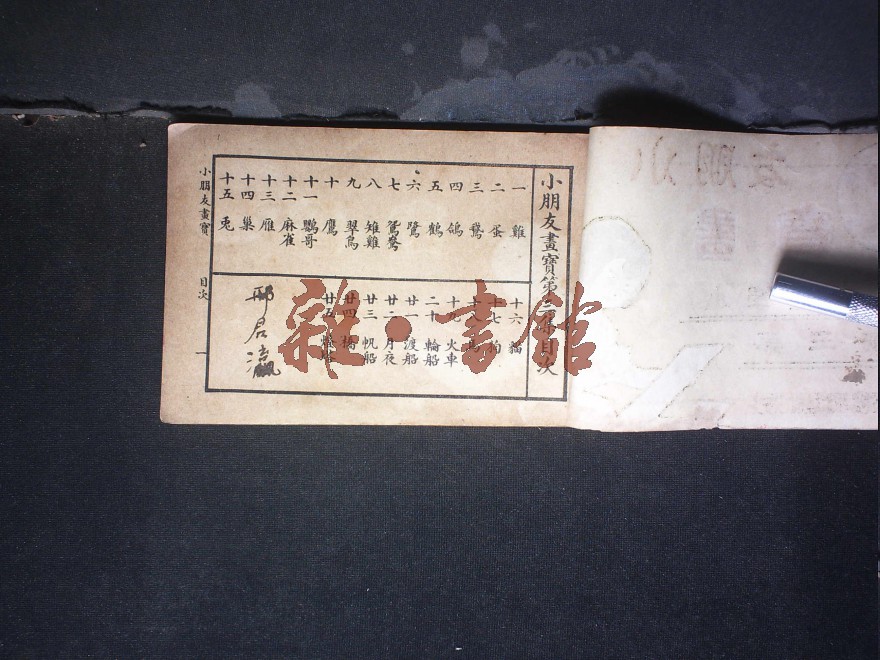 小朋友畫寶第三集目次
一 雞
二 蛋
三 鵞
四 鴿
五 鶴
六 鷺
七 鴛鴦
八 雉雞
九 翠鳥
十 鷹
十一 鸚哥
十二 麻雀
十三 雁
十四 巢
十五 兎
十六 貓
十七 狗
十八 馬
十九 火車
二十 輪船
廿一 渡船
廿二 月夜
廿三 帆船
廿四 橋
廿五
邢居
小朋友畫寶 目次 一
雜·書館